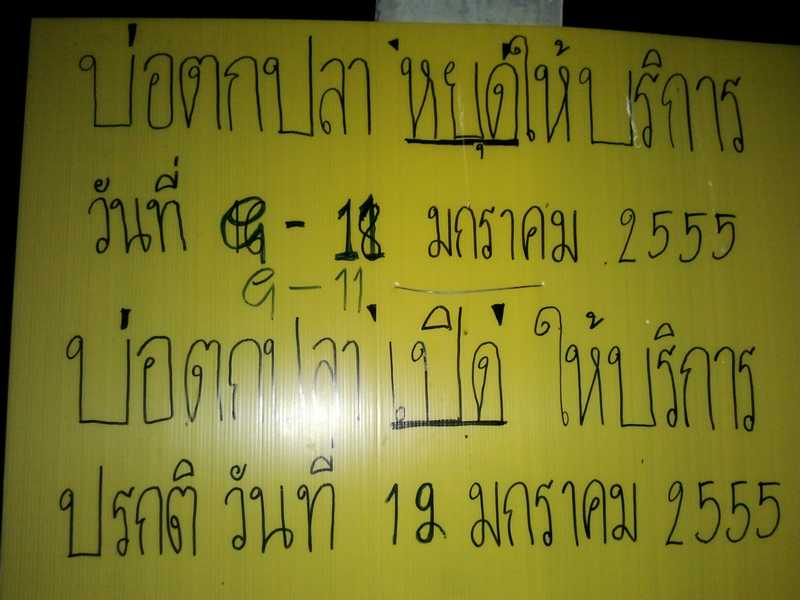 บ่อตกปลา "หยุด" ให้บริการ
วันที่ 9 - 11 มกราคม 2555
9 - 11
บ่อตกปลา "เปิด" ให้บริการ
ปรกติ วันที่ 12 มกราคม 2555